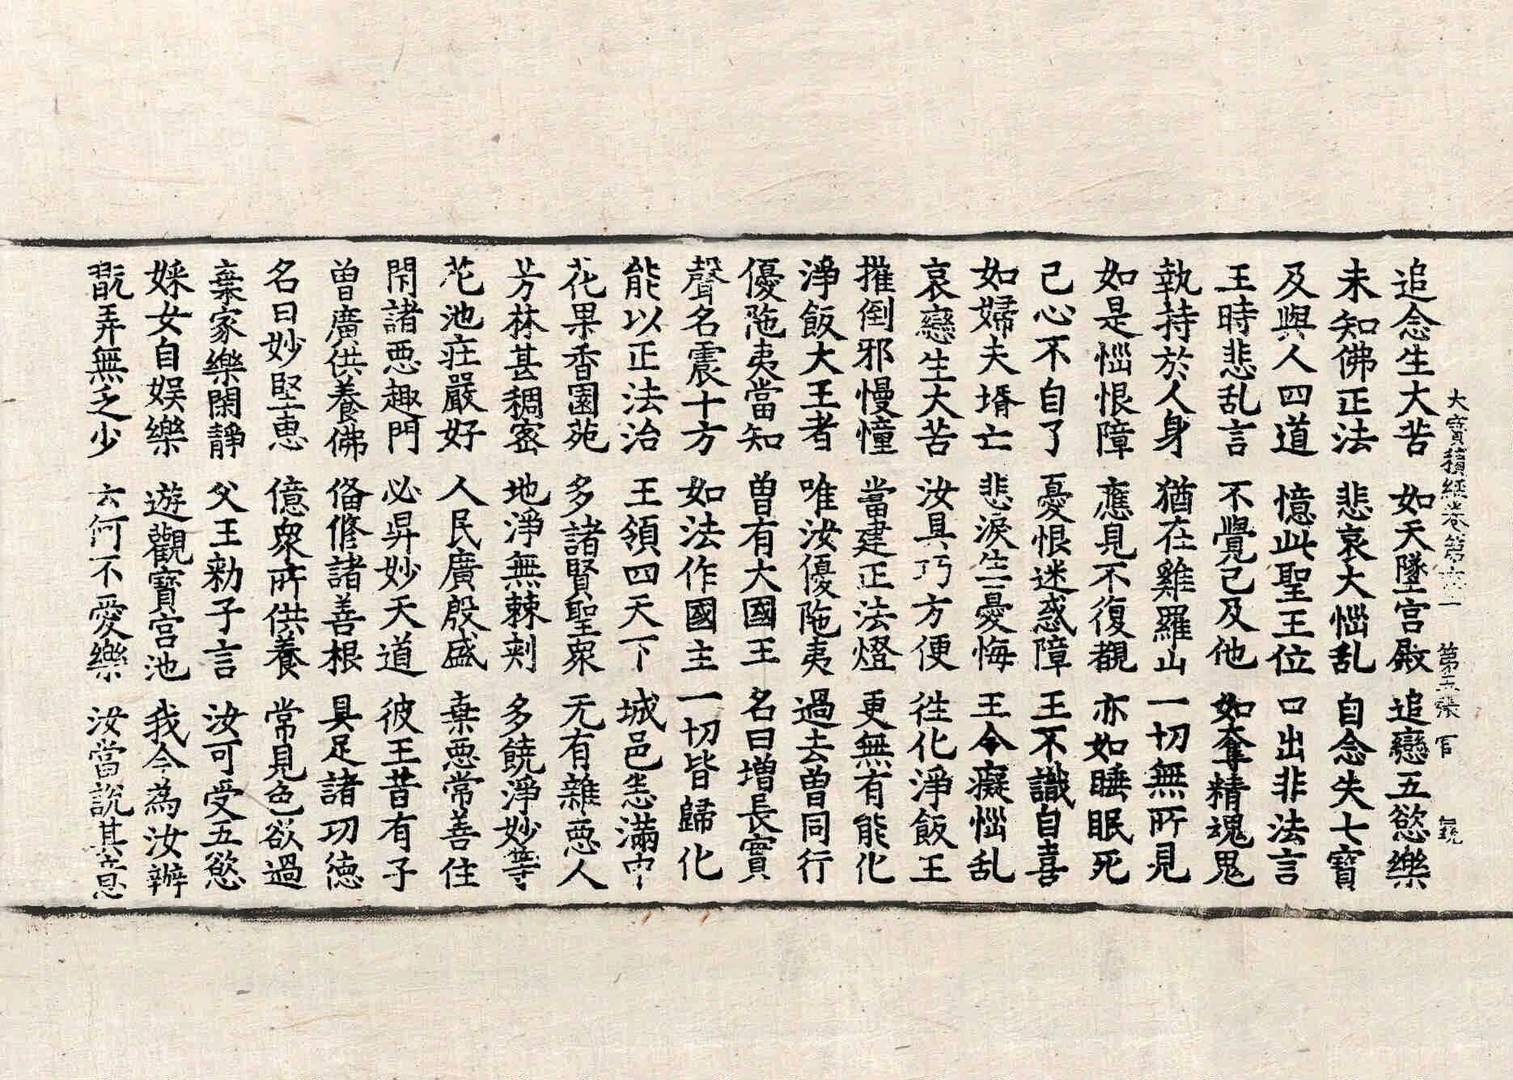 大寶積經卷第六一 第五張 官
追念生大苦 如天墬宮殿 追戀五慾樂
未知佛正法 悲哀大惱乱 自念失七寶
及與人四道 憶此聖王位 口出非法言
王時悲乱言 不覺己及他 如奪精魂鬼
執持於人身 猶在雞羅山 一切無所見
如是惱恨障 應見不復覩 亦如睡眠死
己心不自了 憂恨迷惑障 王不識自喜
如婦夫壻亡 悲淚生憂悔 王今癡惱乱
哀戀生大苦 汝具巧方便 往化淨飯王
摧倒邪慢憧 當建正法燈 更無有能化
淨飯大王者 唯汝優陁夷 過去曾同行
優陁夷當知 曽有大國王 名曰増長實
聲名震十方 如法作國主 一切皆歸化
能以正法治 王領四天下 城邑悉滿中
花果香園苑 多諸賢聖衆 无有雜悪人
芳林甚稠宻 地淨無棘刾 多饒淨妙華
花池莊嚴好 人民廣殷盛 棄悪常善住
閇諸悪趣門 必昇妙天道 彼王昔有子
曽廣供養佛 俻修諸善根 具足諸功徳
名曰妙堅恵 億衆所供養 常見色欲過
棄家樂閑靜 父王勑子言 汝可受五慾
婇女自娱樂 遊觀寳宮池 我今為汝辦
翫弄無乏少 云何不愛樂 汝當說其意